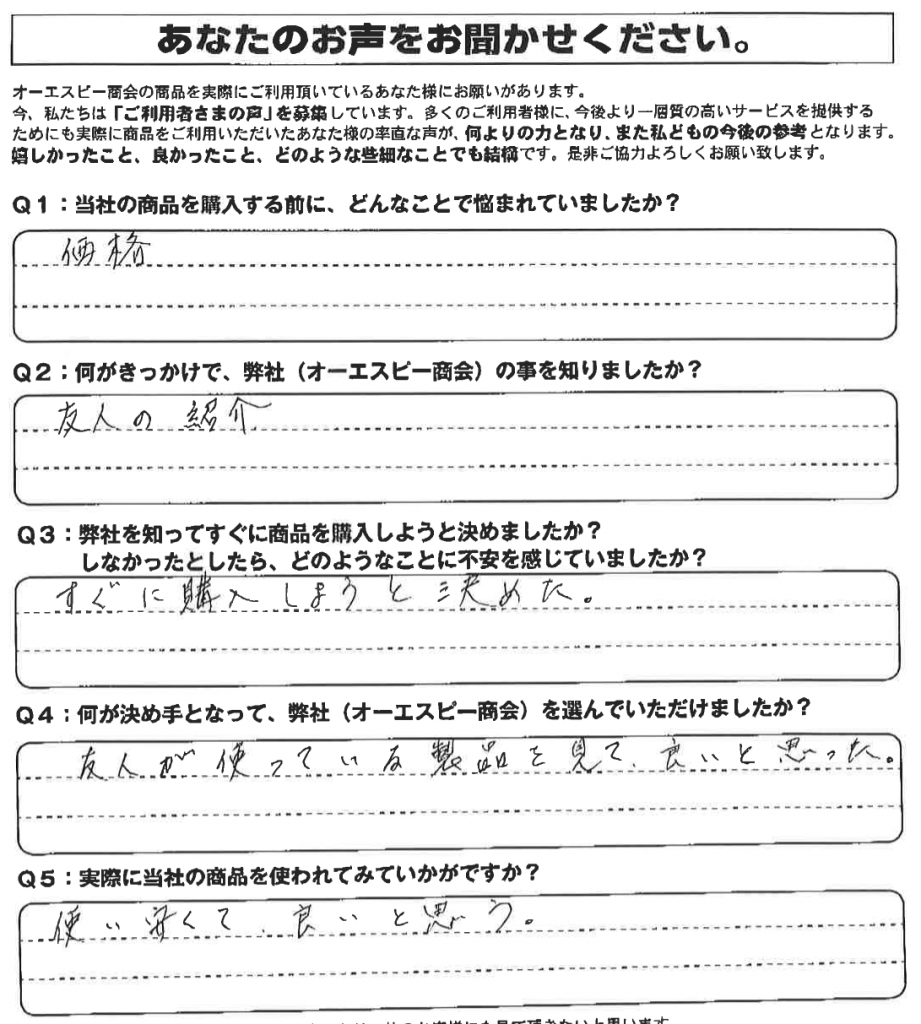 あなたのお声をお聞かせください。
オーエスピー商会の商品を実際にご利用頂いているあなた様にお願いがあります。
今、私たちは「ご利用者さまの声」を募集しています。多くのご利用者様に、今後より一層質の高いサービスを提供する
ためにも実際に商品をご利用いただいたあなた様の率直な声が、何よりの力となり、また私どもの今後の参考となります。
嬉しかったこと、良かったこと、どのような些細なことでも結構です。是非ご協力よろしくお願い致します。
Q1：当社の商品を購入する前に、どんなことで悩まれていましたか？
価格
Q2：何がきっかけで、弊社（オーエスピー商会）の事を知りましたか？
友人の紹介
Q3：弊社を知ってすぐに商品を購入しようと決めましたか？
しなかったとしたら、どのようなことに不安を感じていましたか？
すぐに購入しようと決めた。
Q4：何が決め手となって、弊社（オーエスピー商会）を選んでいただけましたか？
友人が使っている製品を見て、良いと思った。
Q5：実際に当社の商品を使われてみていかがですか？
使い安くて、良いと思う。